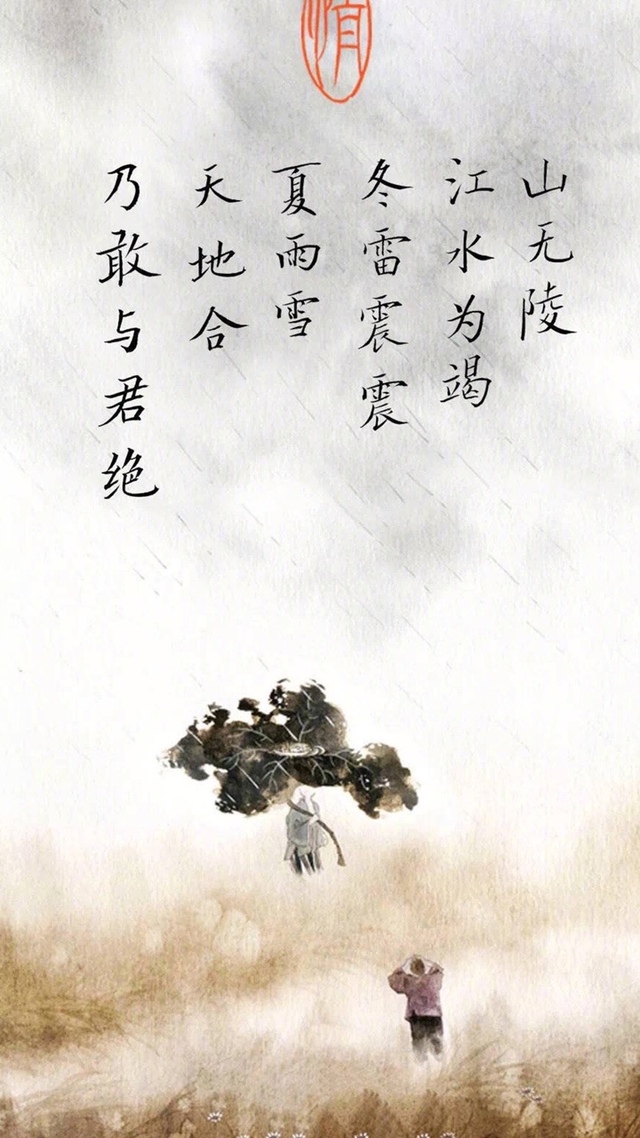 情
山无陵
江水为竭
冬雷震震
夏雨雪
天地合
乃敢与君绝